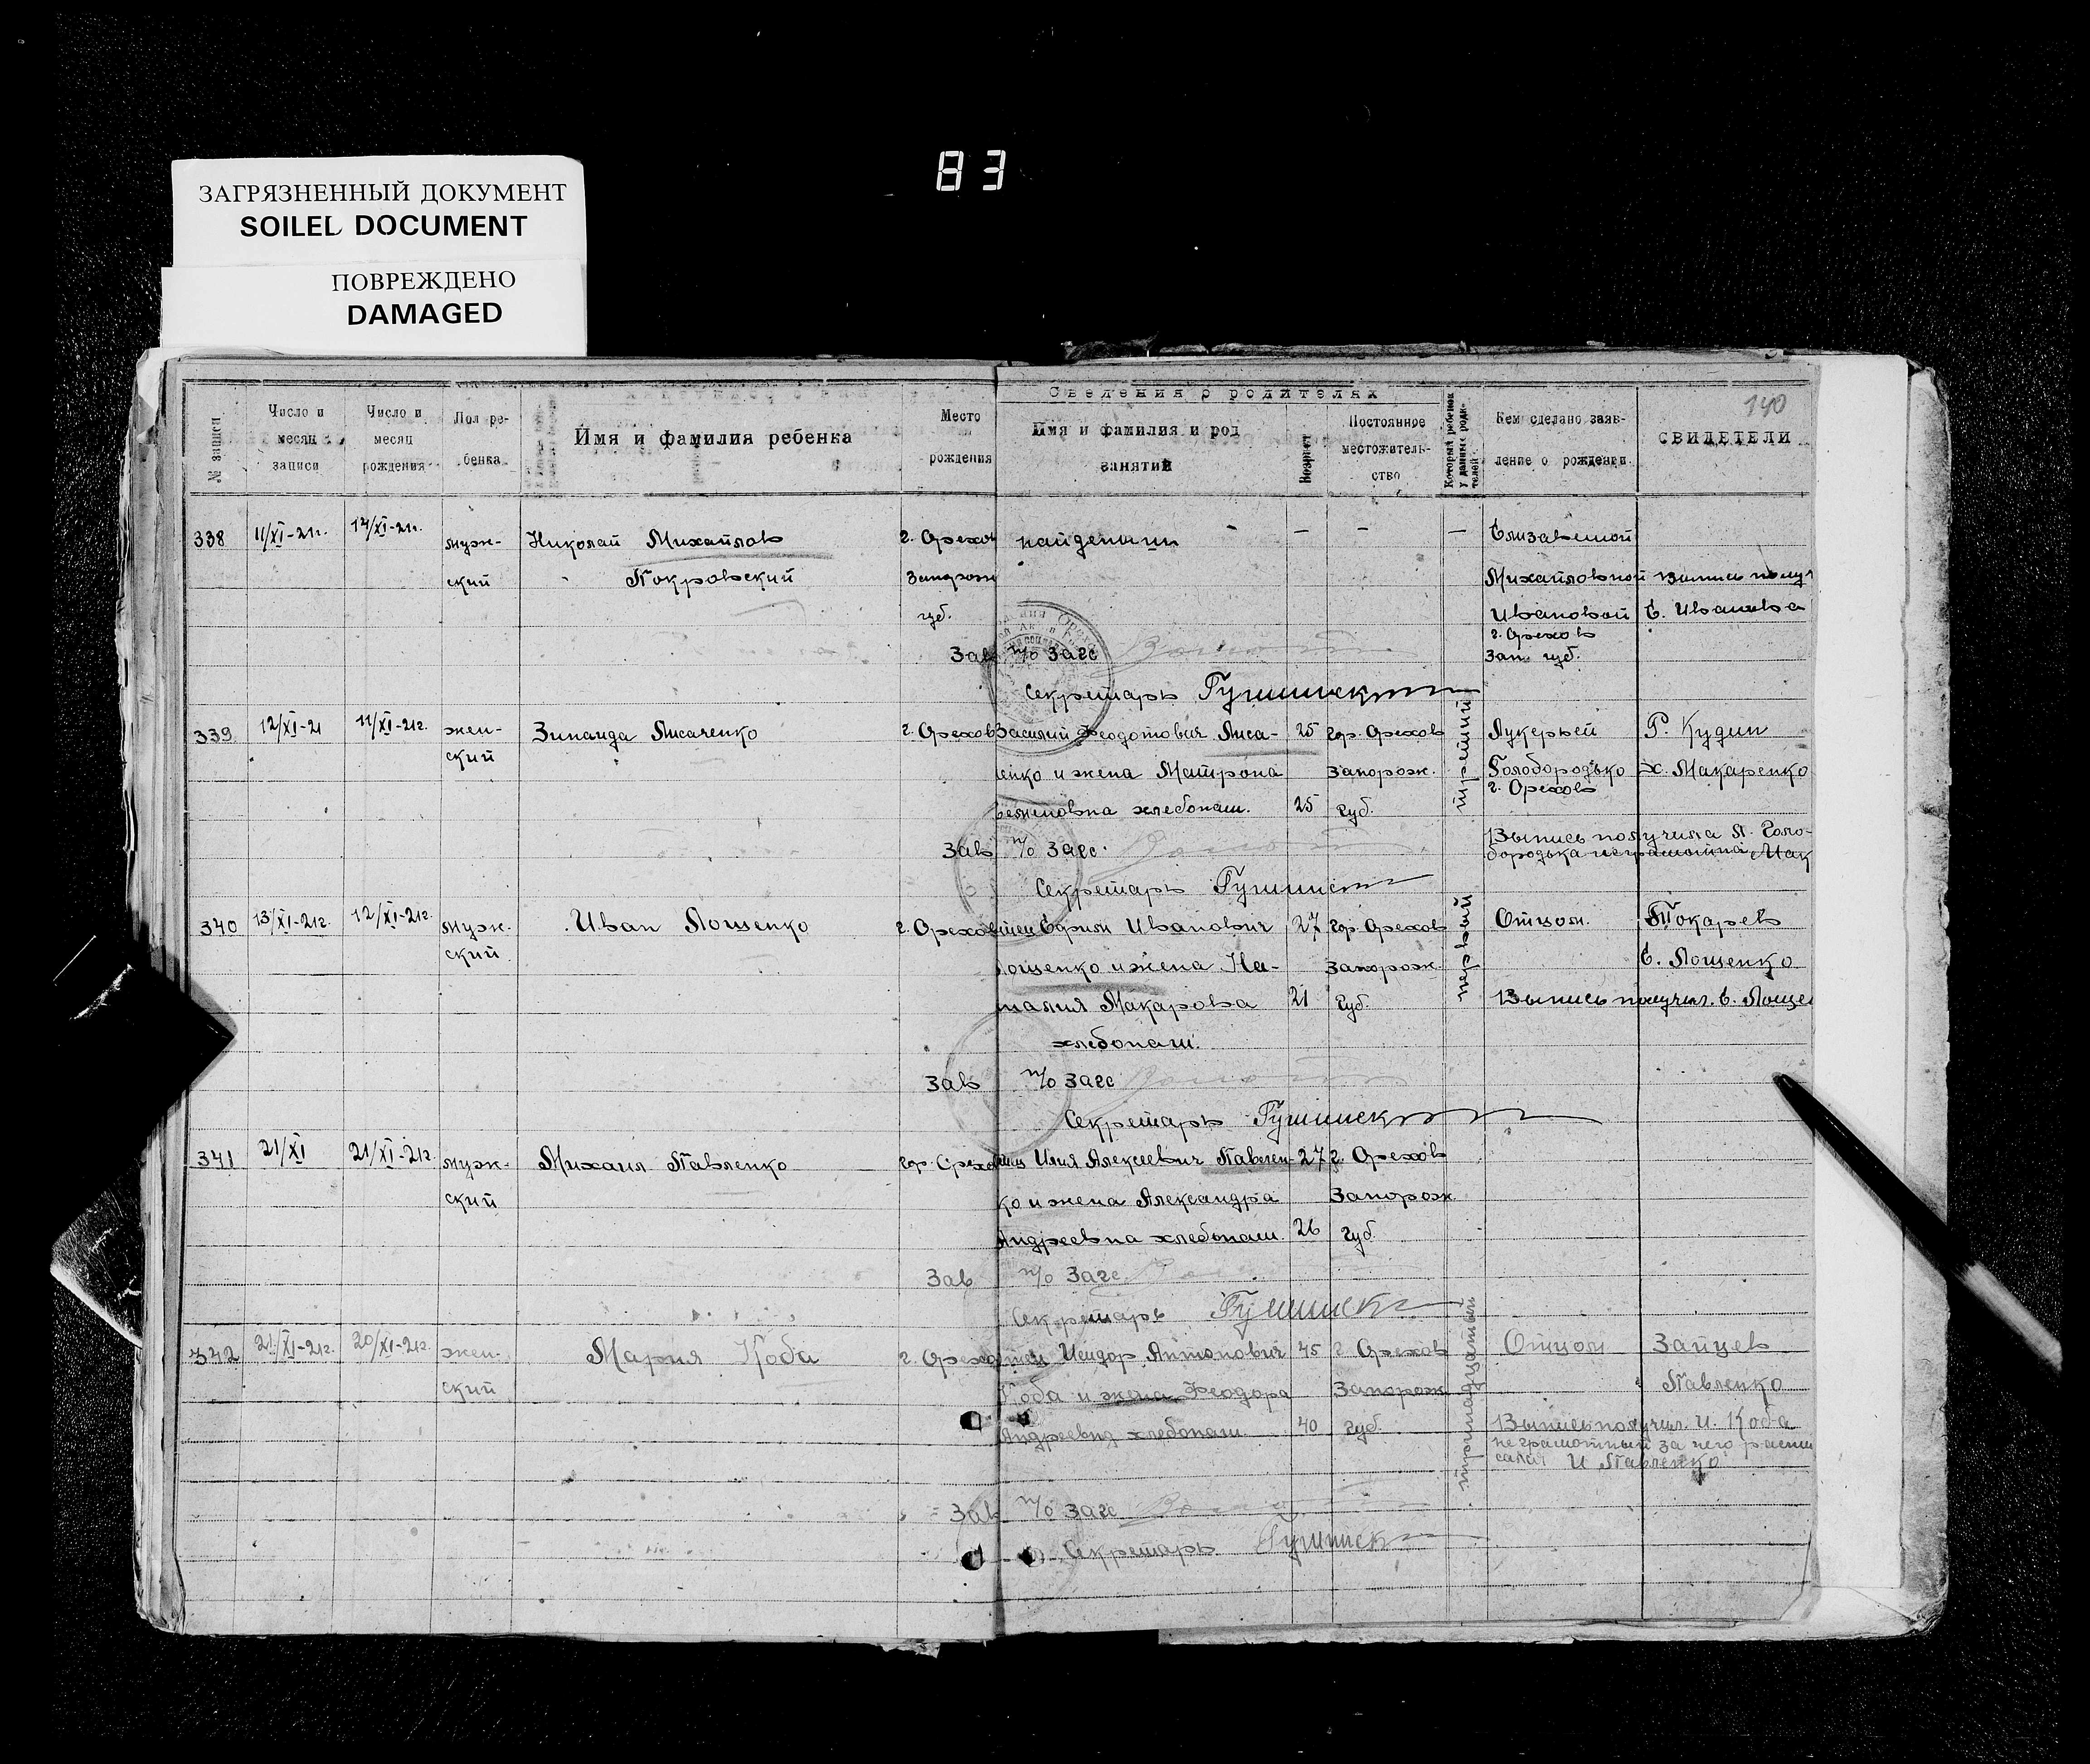 83
ЗАГРЯЗНЕННЫЙ ДОКУМЕНТ
SOILED DOCUMENT
ПОВРЕЖДЕНО
DAMAGED
140
Сведения о родителях
№ записи
Число и месяц записи
Число и месяц рождения
Пол ребенка
Имя и фамилия ребенка
Место рождения
Имя и фамилия и род занятий
Возраст
Постоянное местожительство
Который ребенок у данных родителей
Кем сделано заявление о рождении
СВИДЕТЕЛИ
338 11/XI-21г. 14/XI-21г. муж- Николай Михайлов г. Орехов найденыш — — — Елизаветой
ский Покровский Запорож Михайловной Выпись получ
губ. Ивановой Е. Иванова
г. Орехов
Зав п/о Загс Зап. губ.
Секретарь
339 12/XI-21 11/XI-21г. жен- Зинаида Лисаченко г. Орехов Василий Феодотович Лиса- 25 гор. Орехов третий Лукерьей Р. Кудин
ский ченко и жена Матрона Запорож. Голобородько Х. Макаренко
г. Орехов
Семеновна хлебопаш. 25 губ.
Зав п/о Загс. Выпись получила Л. Голо-
бородька неграмотна Мак
Секретарь
340 13/XI-21г. 12/XI-21г. муж- Иван Лошенко г. Орехов Ефим Иванович 27 гор. Орехов первый Отцом. Токарев
ский. Лошенко и жена На- Запорож. Е. Лошенко
талия Макарова 21 губ. Выпись получил. Е. Лоще
хлебопаш.
Зав п/о Загс
Секретарь
341 21/XI 21/XI-21г. муж- Михаил Павленко гор. Орехов Илия Алексеевич Павлен- 27 г. Орехов
ский ко и жена Александра Запорож.
Андреевна хлебопаш. 26 губ.
Зав п/о Загс
Секретарь
342 21/XI-21г. 20/XI-21г. жен- Мария Коба г. Орехов Исидор Антонович 45 г. Орехов тринадцатый Отцом Зайцев
ский Коба и жена Феодора Запорож Павленко
Андреевна хлебопаш. 40 губ. Выпись получил. И. Коба
неграмотный за него распи
сался И Павленко
Зав п/о Загс
Секретарь